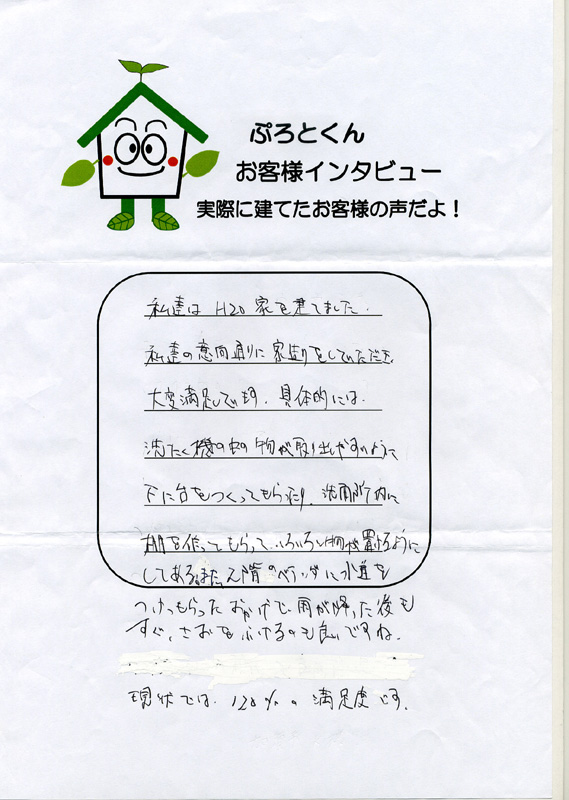 ぷろとくん
お客様インタビュー
実際に建てたお客様の声だよ！
私達は H20 家を建てました.
私達の意向通りに家造りをしていただき、
大変満足しています. 具体的には、
洗たく機の中の物が取り出しやすいように
下に台をつくってもらったり、洗面所内に
棚を作ってもらって、いろいろ物が置けるように
してある。また、2階のベランダに水道を
つけてもらったおかげで、雨が降った後も
すぐ、さおをふけるのも良いですね.
現状では、120%の満足度です.